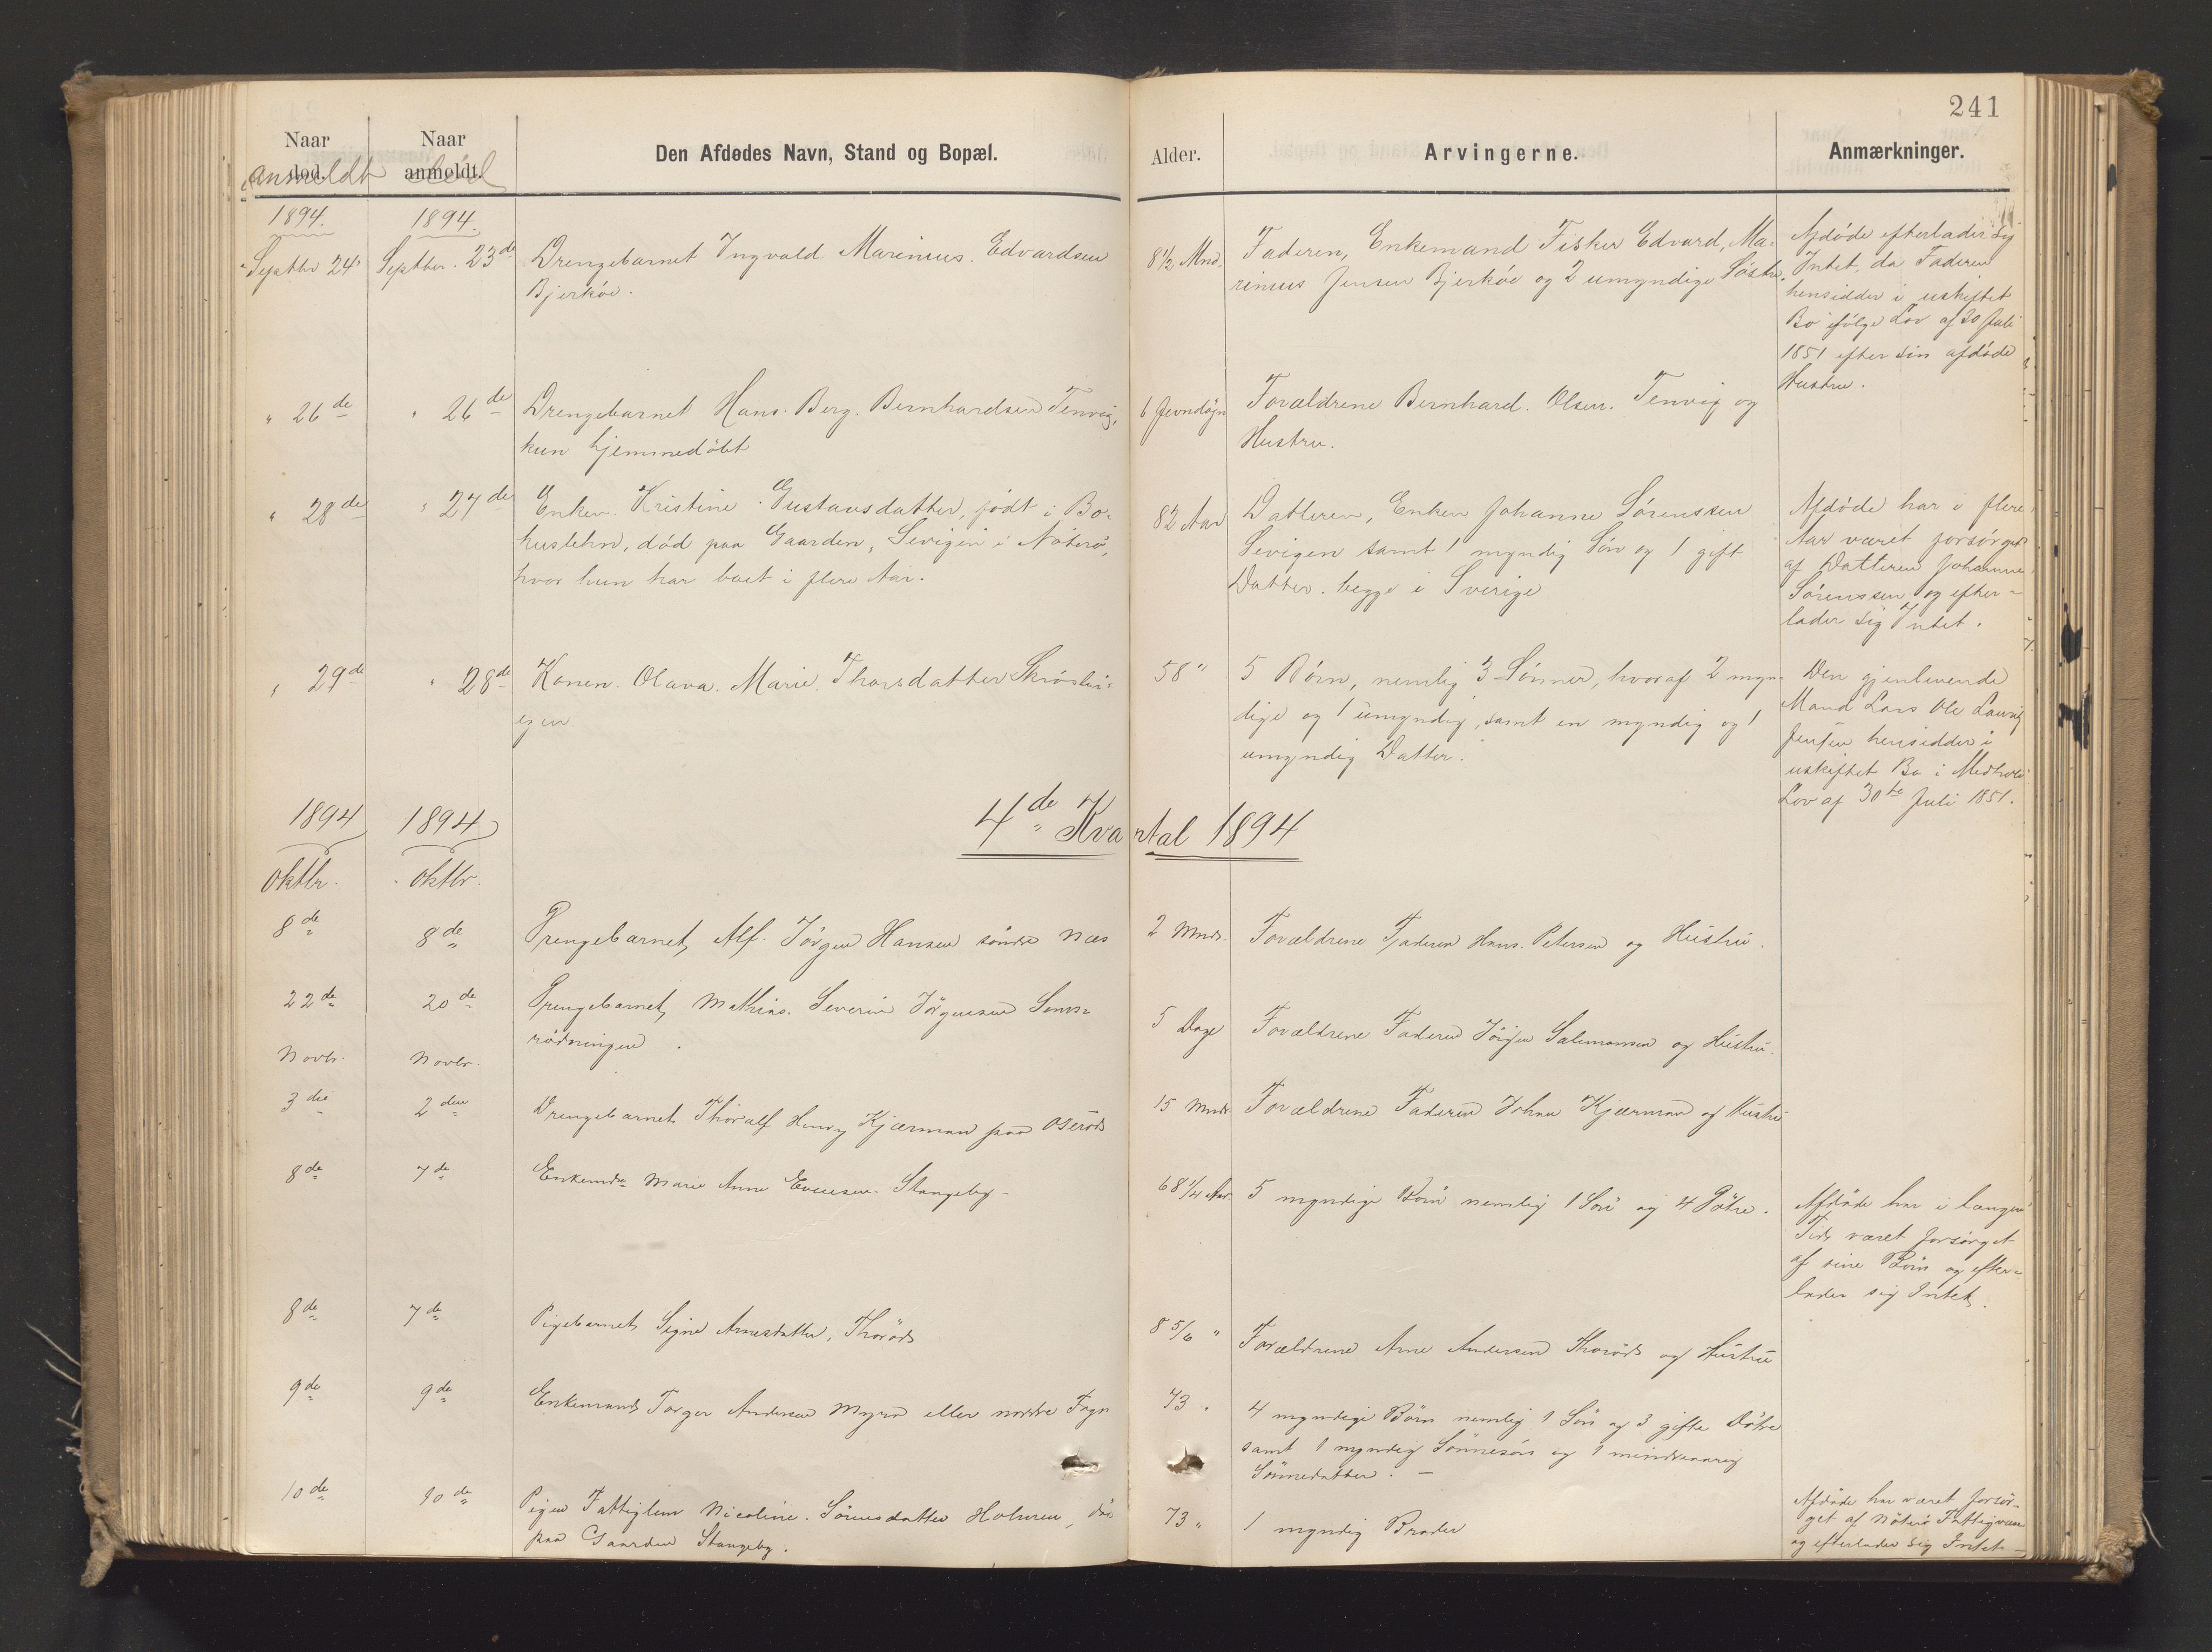 241
Naar død. anmeldt
Naar anmeldt. død
Den Afdødes Navn, Stand og Bopæl.
Alder.
Arvingerne.
Anmærkninger.
1894. 1894.
Septbr 24 Septbr. 23de Drengebarnet Ingvald Marinius Edvardsen
Bjerkøe.
8 1/2 Mnd. Faderen, Enkemand Fisker Edvard, Ma-
rinius Jensen Bjerkøe og 2 umyndige Søstre.
Afdøde efterlader sig
Intet, da Faderen
hensidder i uskiftet
Bo ifølge Lov af 30 Juli
1851 efter sin afdøde
Hustru.
" 26de " 26de Drengebarnet Hans Berg Bernhardsen Tenvig,
kun hjemmedøbt
6 Jevndøgn Forældrene Bernhard Olsen Tenvig og
Hustru.
" 28de " 27de Enken Kristine Gustavsdatter, født i Bo-
huslehn, død paa Gaarden, Sevigen i Nøterø,
hvor hun har boet i flere Aar.
82 Aar Datteren, Enken Johanne Sørenssen
Sevigen samt 1 myndig Søn og 1 gift
Datter, begge i Sverige
Afdøde har i flere
Aar været forsørget
af Datteren Johanne
Sørenssen og efter-
lader sig Intet.
" 29de " 28de Konen Olava Marie Thorsdatter
egen
58 " 5 Børn, nemlig 3 Sønner, hvoraf 2 myn-
dige og 1 umyndig, samt en myndig og 1
umyndig Datter.
Den gjenlevende
Mand Lars Ole Lauritz
Jensen hensidder i
uskiftet Bo i Medhold
Lov af 30te Juli 1851.
4de Kvartal 1894
1894 1894
Oktbr. Oktbr.
8de 8de Drengebarnet Alf Jørgen Hansen søndre Næs
2 Mndr. Forældrene Faderen Hans Petersen og Hustru.
22de 20de Drengebarnet Mathias Severin Jørgensen Sems-
rødningen.
5 Dage Forældrene Faderen Jörgen Salomonsen og Hustru.
Novbr. Novbr.
3die 2den Drengebarnet Thoralf Henry Kjærman paa Oserød
15 Mndr Forældrene Faderen Johan Kjærman og Hustru
8de 7de Marie Anne Evensen Stangeby
68 1/4 Aar 5 myndige Børn nemlig 1 Søn og 4 Døtre.
Afdøde har i længere
Tid været forsørget
af sine Børn og efter-
lader sig Intet.
8de 7de Pigebarnet Signe Arnesdatter, Thorød
8 5/6 " Forældrene Arne Andersen Thorød og Hustru
9de 9de Enkemand Torger Andersen Myren eller nordre
73 " 4 myndige Børn nemlig 1 Søn og 3 gifte Døtre
samt 1 myndig Sønnesøn og 1 mindreaarig
Sønnedatter. —
10de 10de Pigen Fattiglem Nicoline Sörensdatter Holmen, død
paa Gaarden Stangeby.
73 " 1 myndig Broder
Afdøde har været forsør-
get af Nøterø Fattigvæsen
og efterlader sig Intet —